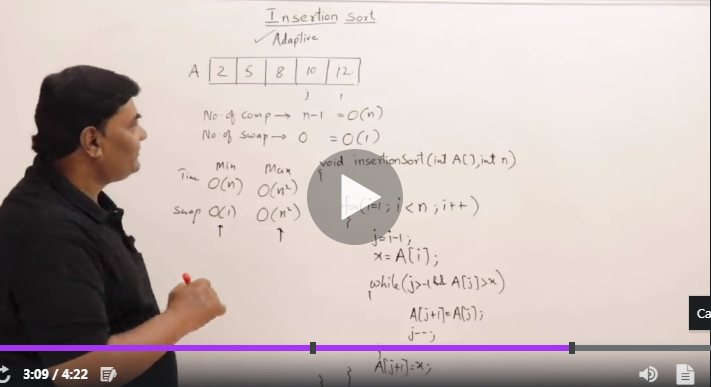 Insertion Sort
✓ Adaptive
A 2 5 8 10 12
j i
No. of comp → n-1 = O(n)
No. of swap → 0 = O(1)
Min Max
Time O(n) O(n²)
Swap O(1) O(n²)
↑ ↑
void insertionSort(int A[], int n)
{
for(i=1; i<n; i++)
{
j=i-1;
x=A[i];
while(j>-1 && A[j]>x)
{
A[j+1]=A[j];
j--;
}
A[j+1]=x;
} }
Ca
3:09 / 4:22